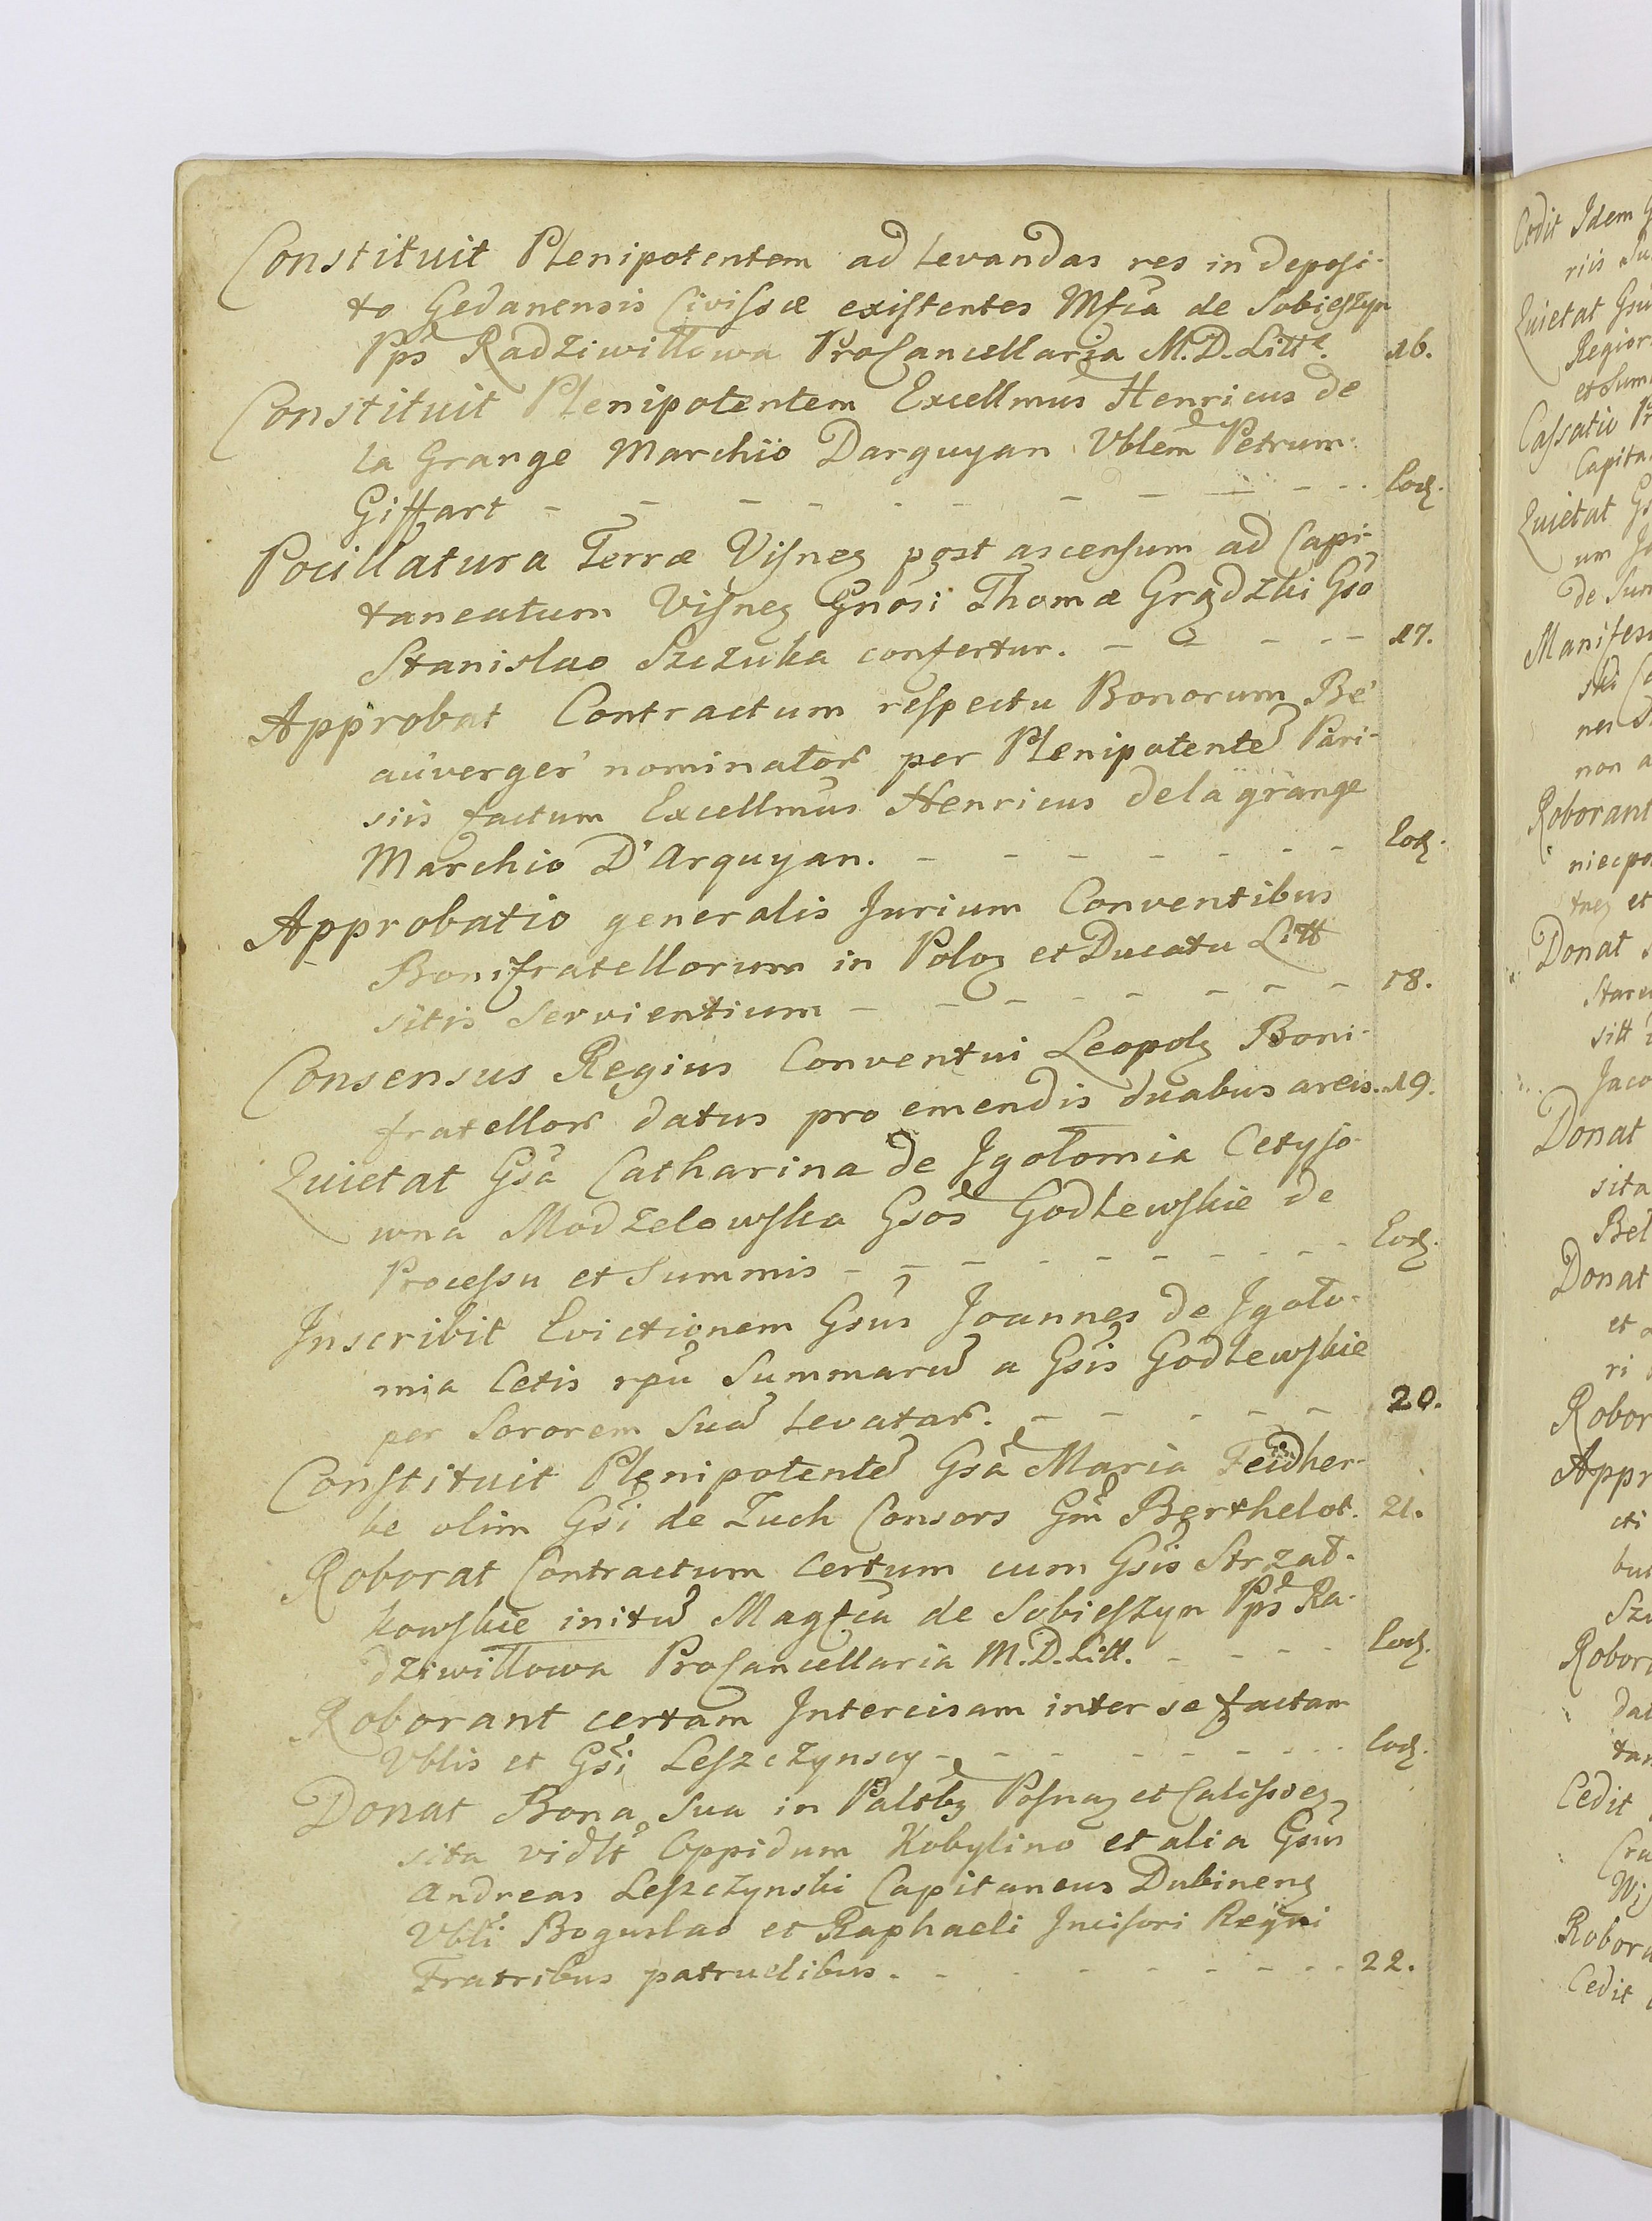 Constituit Plenipotentem ad levandas res in deposi-
to Gedanensis Civissæ existentes Mfca de Sobieszyn
Pps Radziwiłłowa ProCancellaria M.D.Litt. 16.
Constituit Plenipotentem Excellmus Henricus de
la Grange Marchio Darguyan Vblem Petrum
Giffart - - - - - - - - - Eod.
Pocillatura Terræ Visnen post ascensum ad Capi-
taneatum Visnen Gnosi Thomæ Grądzki Gso
Stanislao Szczuka confertur. - - - - 17.
Approbat Contractum respectu Bonorum Be
auverger nominator per Plenipotente Pari-
siis factum Excellmus Henricus de la grange
Marchio D'Arquyan. - - - - - - - Eod.
Approbatio generalis Jurium Conventibus
Bonifratellorum in Polon et Ducatu Litt
sitis servientium - - - - - - - - 18.
Consensus Regius Conventui Leopoln Boni-
fratellor datus pro emendis duabus areis. 19.
Quietat Gsa Catharina de Igołomia Cetyjo-
wna Modzelowska Gsos Godlewskie de
Processu et Summis - - - - - - - - Eod.
Inscribit Evictionem Gsus Joannes de Igoło-
mia Cetis rpu Summaru a Gsis Godlewskie
per Sororem Sua levatar. - - - - - 20.
Constituit Plenipotente Gsa Maria Feidher-
be olim Gsi de Tuch Consors Gm Berthelot. 21.
Roborat Contractum certum cum Gsis Strzał-
kowskie initu Magfca de Sobieszyn Pps Ra-
dziwiłłowa ProCancellaria M.D.Litt. - - - Eod.
Roborant certam Intercisam inter se factam
Vblis et Gsi Leszczynscy - - - - - - - Eod.
Donat Bona Sua in Paltby Posnan et Calissien
sita vidlt Oppidum Kobylino et alia Gsus
Andreas Leszczynski Capitaneus Dubinen
Vbli Boguslao et Raphaeli Incisori Regni
Fratribus patruelibus. - - - - - - - 22.